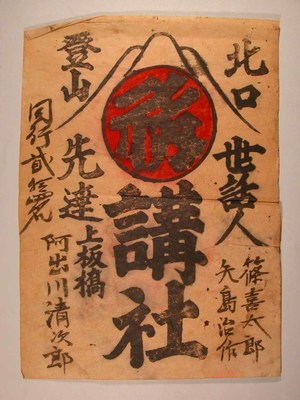 北口
世話人
篠喜太郎
矢島治作
講社
登山
先達
上板橋
阿出川清次郎
同行貳拾名